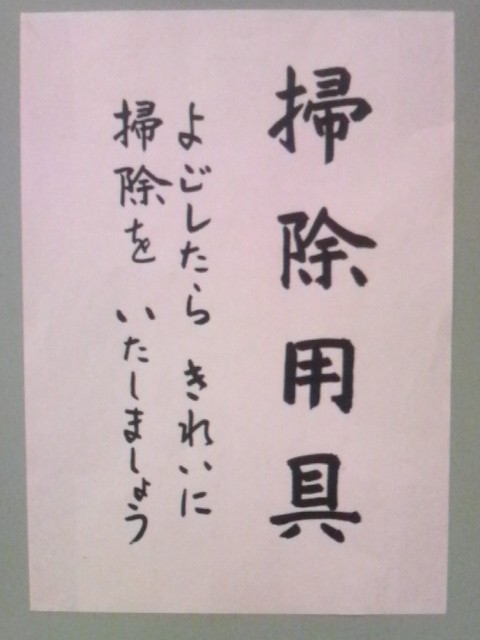 掃除用具
よごしたら きれいに
掃除を いたしましょう